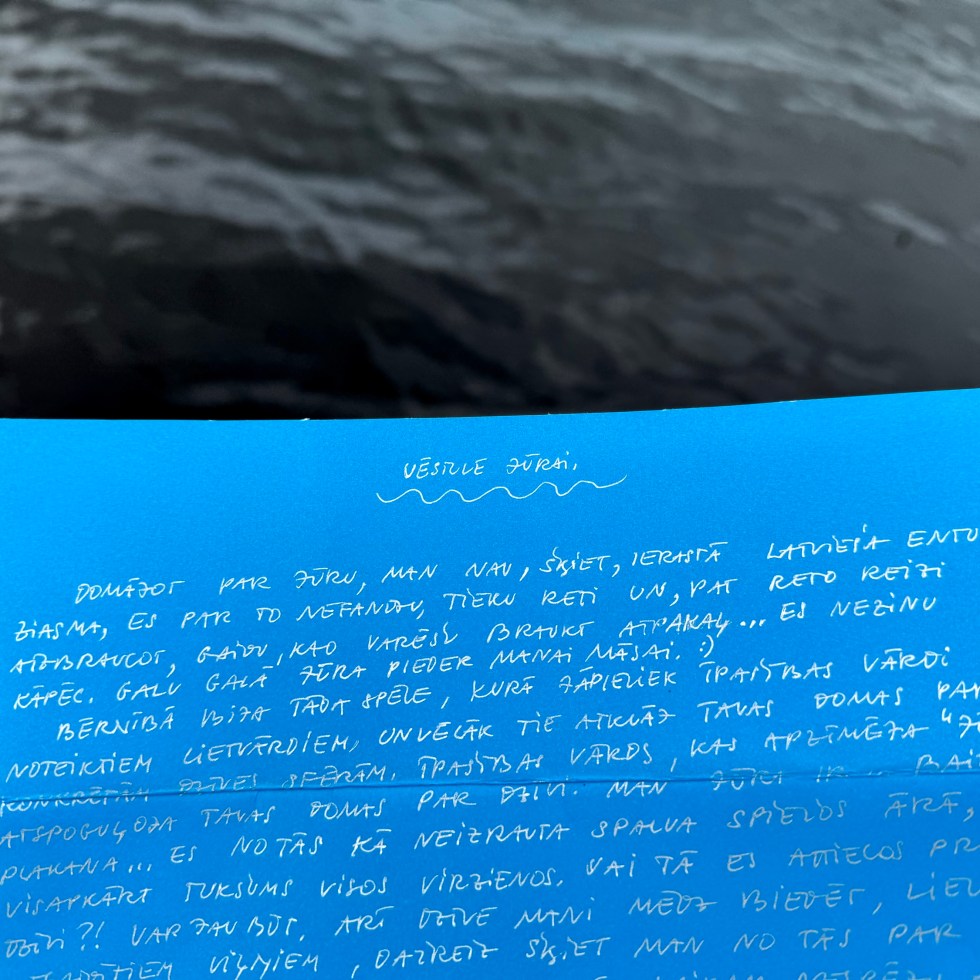 VĒSTULE JŪRAI.
DOMĀJOT PAR JŪRU, MAN NAV, ŠĶIET, IERASTĀ LATVIEŠA ENTU
ZIASMA, ES PAR TO NEFANOJU, TIEKU RETI UN, PAT RETO REIZI
AIZBRAUCOT, GAIDU, KAD VARĒŠU BRAUKT ATPAKAĻ... ES NEZINU
KĀPĒC. GALU GALĀ JŪRA PIEDER MANAI MĀSAI. :)
BĒRNĪBĀ BIJA TĀDA SPĒLE, KURĀ JĀPIELIEK ĪPAŠĪBAS VĀRDI
NOTEIKTIEM LIETVĀRDIEM, UN VĒLĀK TIE ATKLĀJ TAVAS DOMAS PAR
KONKRĒTĀM DZĪVES SFĒRĀM. ĪPAŠĪBAS VĀRDS, KAS APZĪMĒJA
ATSPOGUĻOJA TAVAS DOMAS PAR DZĪVI. MAN JŪRA IR...
PLAKANA... ES NO TĀS KĀ NEIZRAUTA SPALVA SPIEŽOS ĀRĀ,
VISAPKĀRT TUKŠUMS VISOS VIRZIENOS. VAI TĀ ES ATTIECOS
DZĪVI?! VAR JAU BŪT, ARĪ DZĪVE MANI MĒDZ BIEDĒT,
VIĻŅIEM, DAŽREIZ ŠĶIET MAN NO TĀS PAR